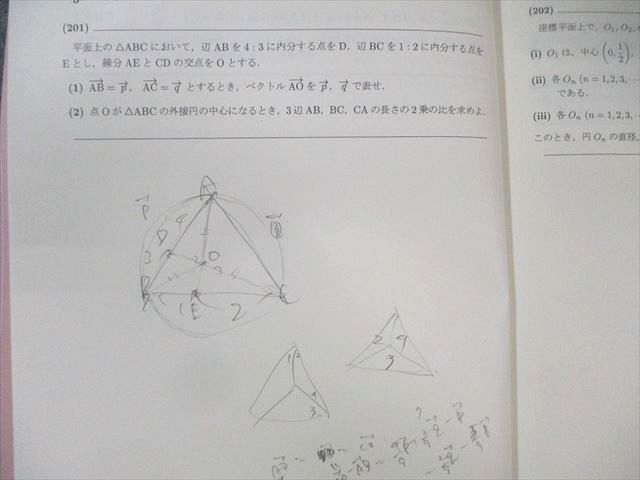 (201)
平面上の△ABCにおいて，辺ABを4：3に内分する点をD，辺BCを1：2に内分する点を
Eとし，線分AEとCDの交点をOとする．
(1) AB=p, AC=q とするとき，ベクトルAOをp, qで表せ．
(2) 点Oが△ABCの外接円の中心になるとき，3辺AB，BC，CAの長さの2乗の比を求めよ．
(202)
座標平面上で，O₁, O₂,
(i) O₁は，中心(0, 1/2)，
(ii) 各Oₙ (n=1,2,3,
である．
(iii) 各Oₙ (n=1,2,3,
このとき，円Oₙの直径，
A
P
4
D
3
O
1
E
2
C
1
4
3
2
4
3